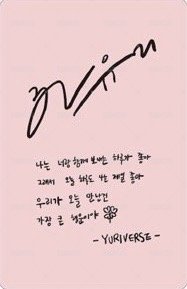 나는 너랑 함께 보내는 하루가 좋아
그래서 오늘 하루도 너무 제일 좋아
우리가 오늘 만난건
가장 큰 행운이야
- YURIVERSE -